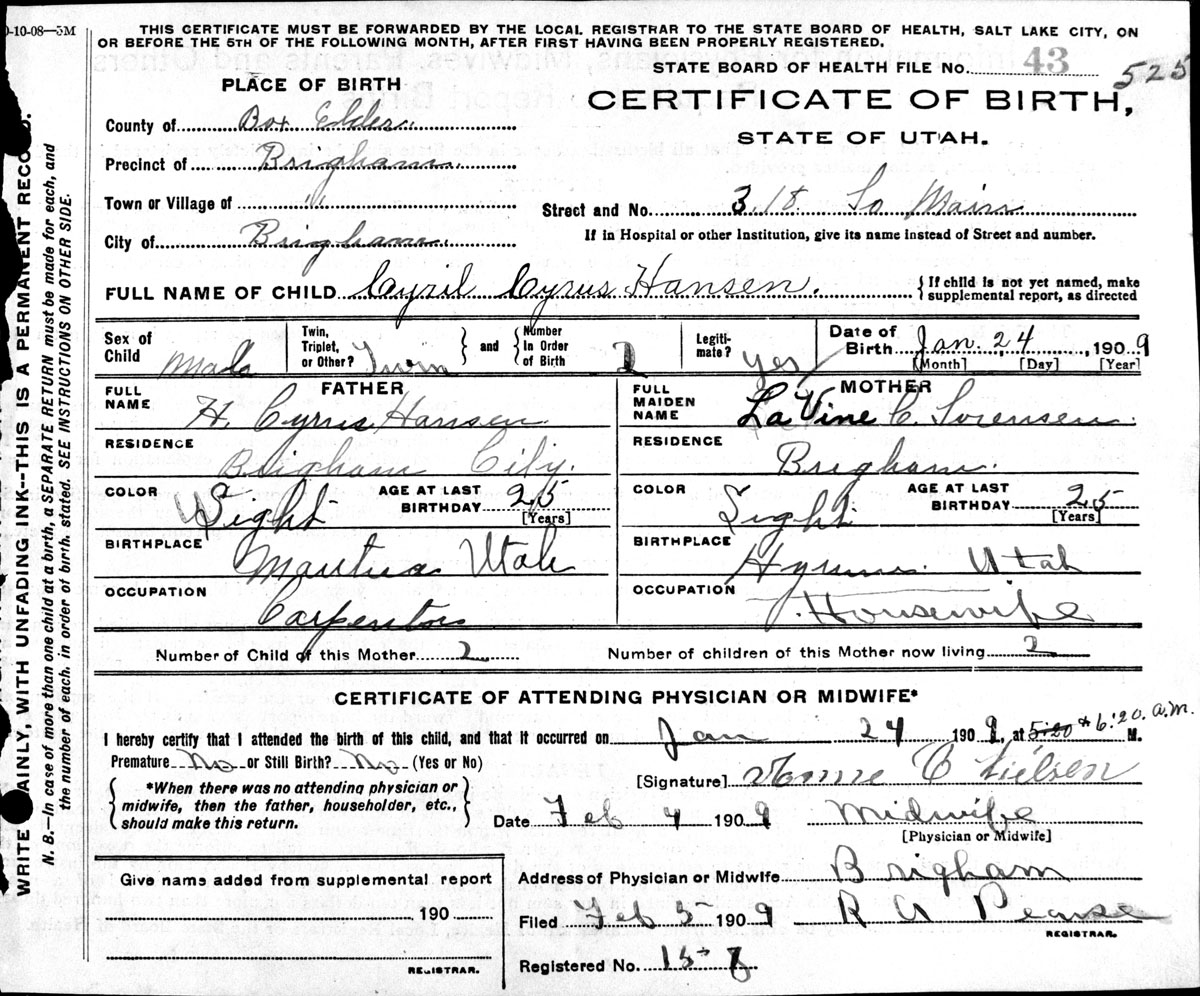 0-10-08—3M
THIS CERTIFICATE MUST BE FORWARDED BY THE LOCAL REGISTRAR TO THE STATE BOARD OF HEALTH, SALT LAKE CITY, ON
OR BEFORE THE 5TH OF THE FOLLOWING MONTH, AFTER FIRST HAVING BEEN PROPERLY REGISTERED.
STATE BOARD OF HEALTH FILE No. 43 525
PLACE OF BIRTH
CERTIFICATE OF BIRTH,
STATE OF UTAH.
County of Box Elder
Precinct of Brigham
Town or Village of "
Street and No. 318 So Main
City of Brigham
If in Hospital or other Institution, give its name instead of Street and number.
FULL NAME OF CHILD Cyril Cyrus Hansen. { If child is not yet named, make
supplemental report, as directed
Sex of Child Male
Twin, Triplet, or Other? Twin } and { Number In Order of Birth 2
Legitimate? yes
Date of Birth Jan. 24, 1909
[Month] [Day] [Year]
FATHER
FULL NAME H. Cyrus Hansen
MOTHER
FULL MAIDEN NAME La Vine C. Sorensen
RESIDENCE Brigham City.
RESIDENCE Brigham.
COLOR Light AGE AT LAST BIRTHDAY 25 [Years]
COLOR Light AGE AT LAST BIRTHDAY 25 [Years]
BIRTHPLACE Mantua Utah
BIRTHPLACE Hyrum Utah
OCCUPATION Carpenter
OCCUPATION Housewife
Number of Child of this Mother 2
Number of children of this Mother now living 2
CERTIFICATE OF ATTENDING PHYSICIAN OR MIDWIFE*
I hereby certify that I attended the birth of this child, and that it occurred on Jan 24 1909, at 5:20 * 6:20 a.m. M.
Premature No or Still Birth? No (Yes or No)
[Signature] Annie C Nielsen
{ *When there was no attending physician or
midwife, then the father, householder, etc.,
should make this return. }
Date Feb 4 1909 Midwife
[Physician or Midwife]
Give name added from supplemental report
190
REGISTRAR.
Address of Physician or Midwife Brigham
Filed Feb 5 1909 R A Pearse
REGISTRAR.
Registered No.
WRITE AINLY, WITH UNFADING INK--THIS IS A PERMANENT RECORD.
N. B.—In case of more than one child at a birth, a SEPARATE RETURN must be made for each, and
the number of each, in order of birth, stated. SEE INSTRUCTIONS ON OTHER SIDE.